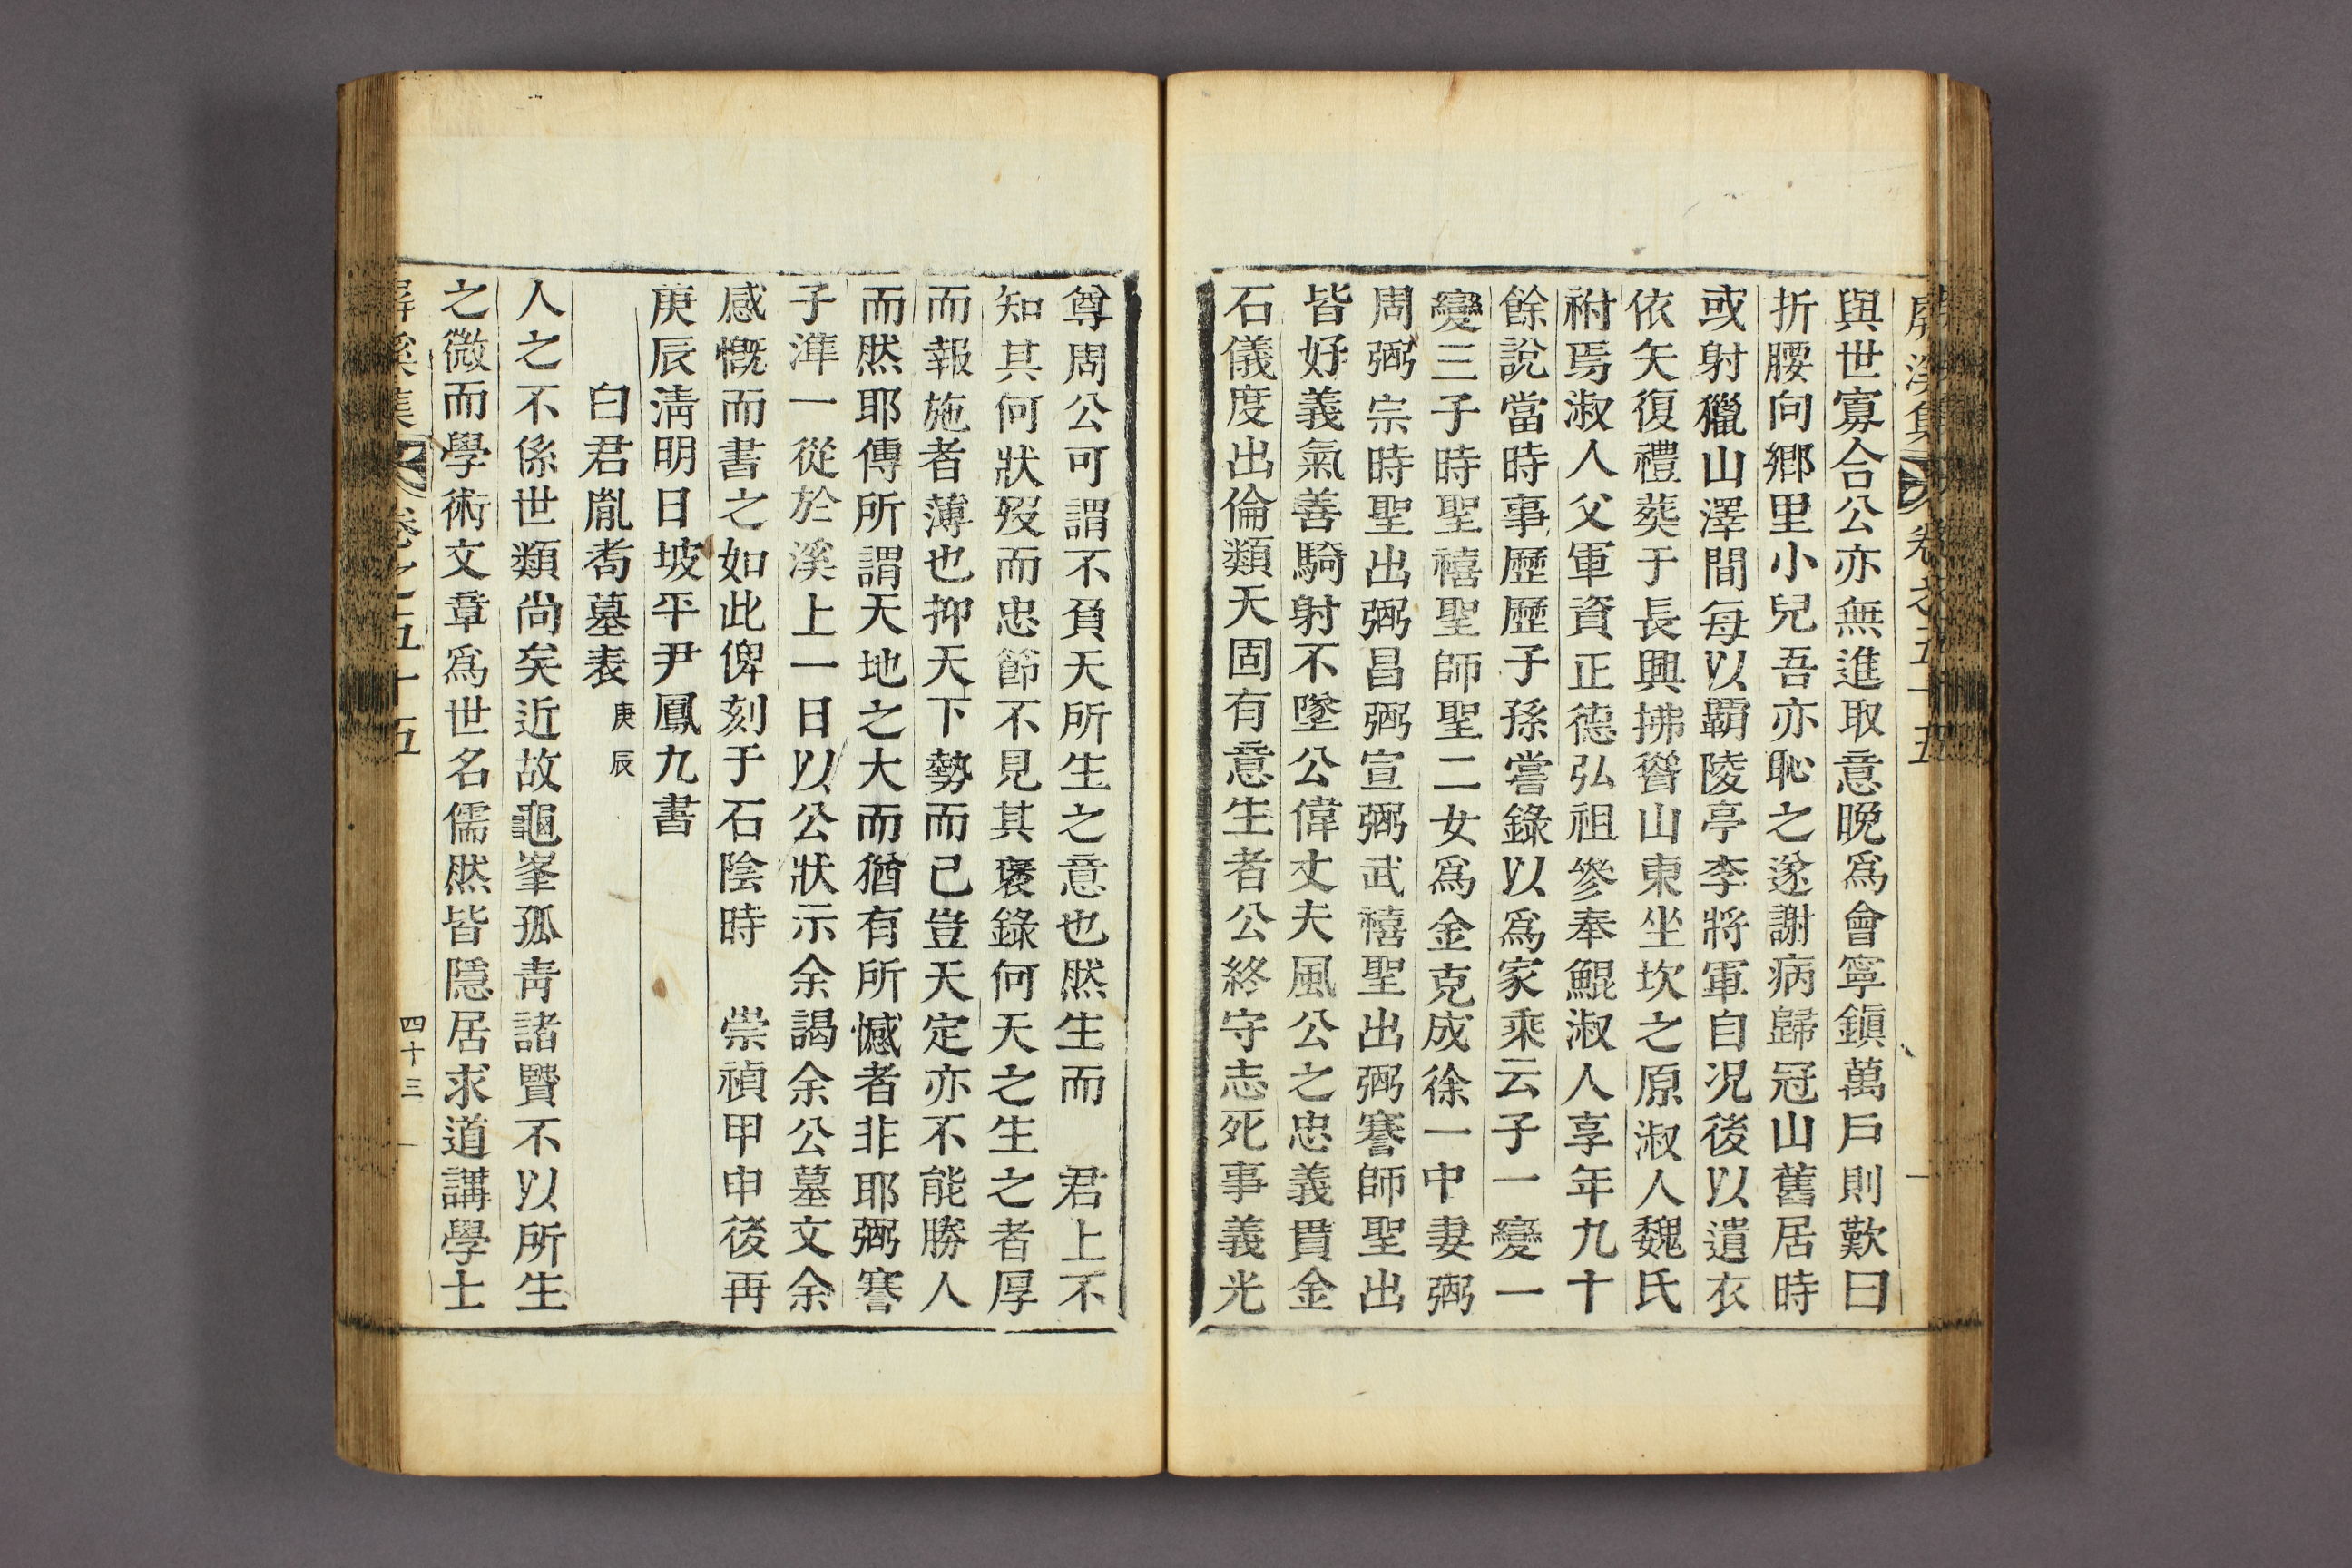 屛溪集 卷之五十五
與世寡合公亦無進取意晚爲會寧鎭萬戶則歎曰
折腰向鄕里小兒吾亦恥之遂謝病歸冠山舊居時
或射獵山澤間每以霸陵亭李將軍自况後以遺衣
依矢復禮葬于長興拂簪山東坐坎之原淑人魏氏
祔焉淑人父軍資正德弘祖參奉鯤淑人享年九十
餘說當時事歷歷子孫嘗錄以爲家乘云子一變一
變三子時聖禧聖師聖二女爲金克成徐一中妻弼
周弼宗時聖出弼昌弼宣弼武禧聖出弼謇師聖出
皆好義氣善騎射不墜公偉丈夫風公之忠義貫金
石儀度出倫類天固有意生者公終守志死事義光
尊周公可謂不負天所生之意也然生而 君上不
知其何狀歿而忠節不見其褒錄何天之生之者厚
而報施者薄也抑天下勢而已豈天定亦不能勝人
而然耶傳所謂天地之大而猶有所憾者非耶弼謇
子準一從於溪上一日以公狀示余謁余公墓文余
感慨而書之如此俾刻于石陰時 崇禎甲申後再
庚辰淸明日坡平尹鳳九書
白君胤耈墓表 庚辰
人之不係世類尙矣近故龜峯孤靑諸賢不以所生
之微而學術文章爲世名儒然皆隱居求道講學士
屛溪集 卷之五十五 四十三